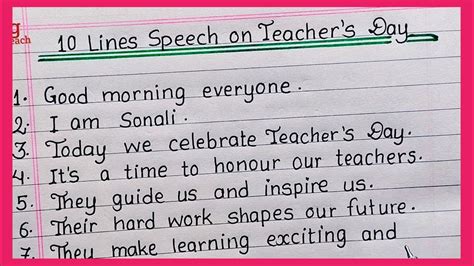 10 Lines Speech on Teacher's Day
each
1. Good morning everyone.
2. I am Sonali.
3. Today we celebrate Teacher's Day.
4. It's a time to honour our teachers.
5. They guide us and inspire us.
6. Their hard work shapes our future.
7. They make learning exciting and